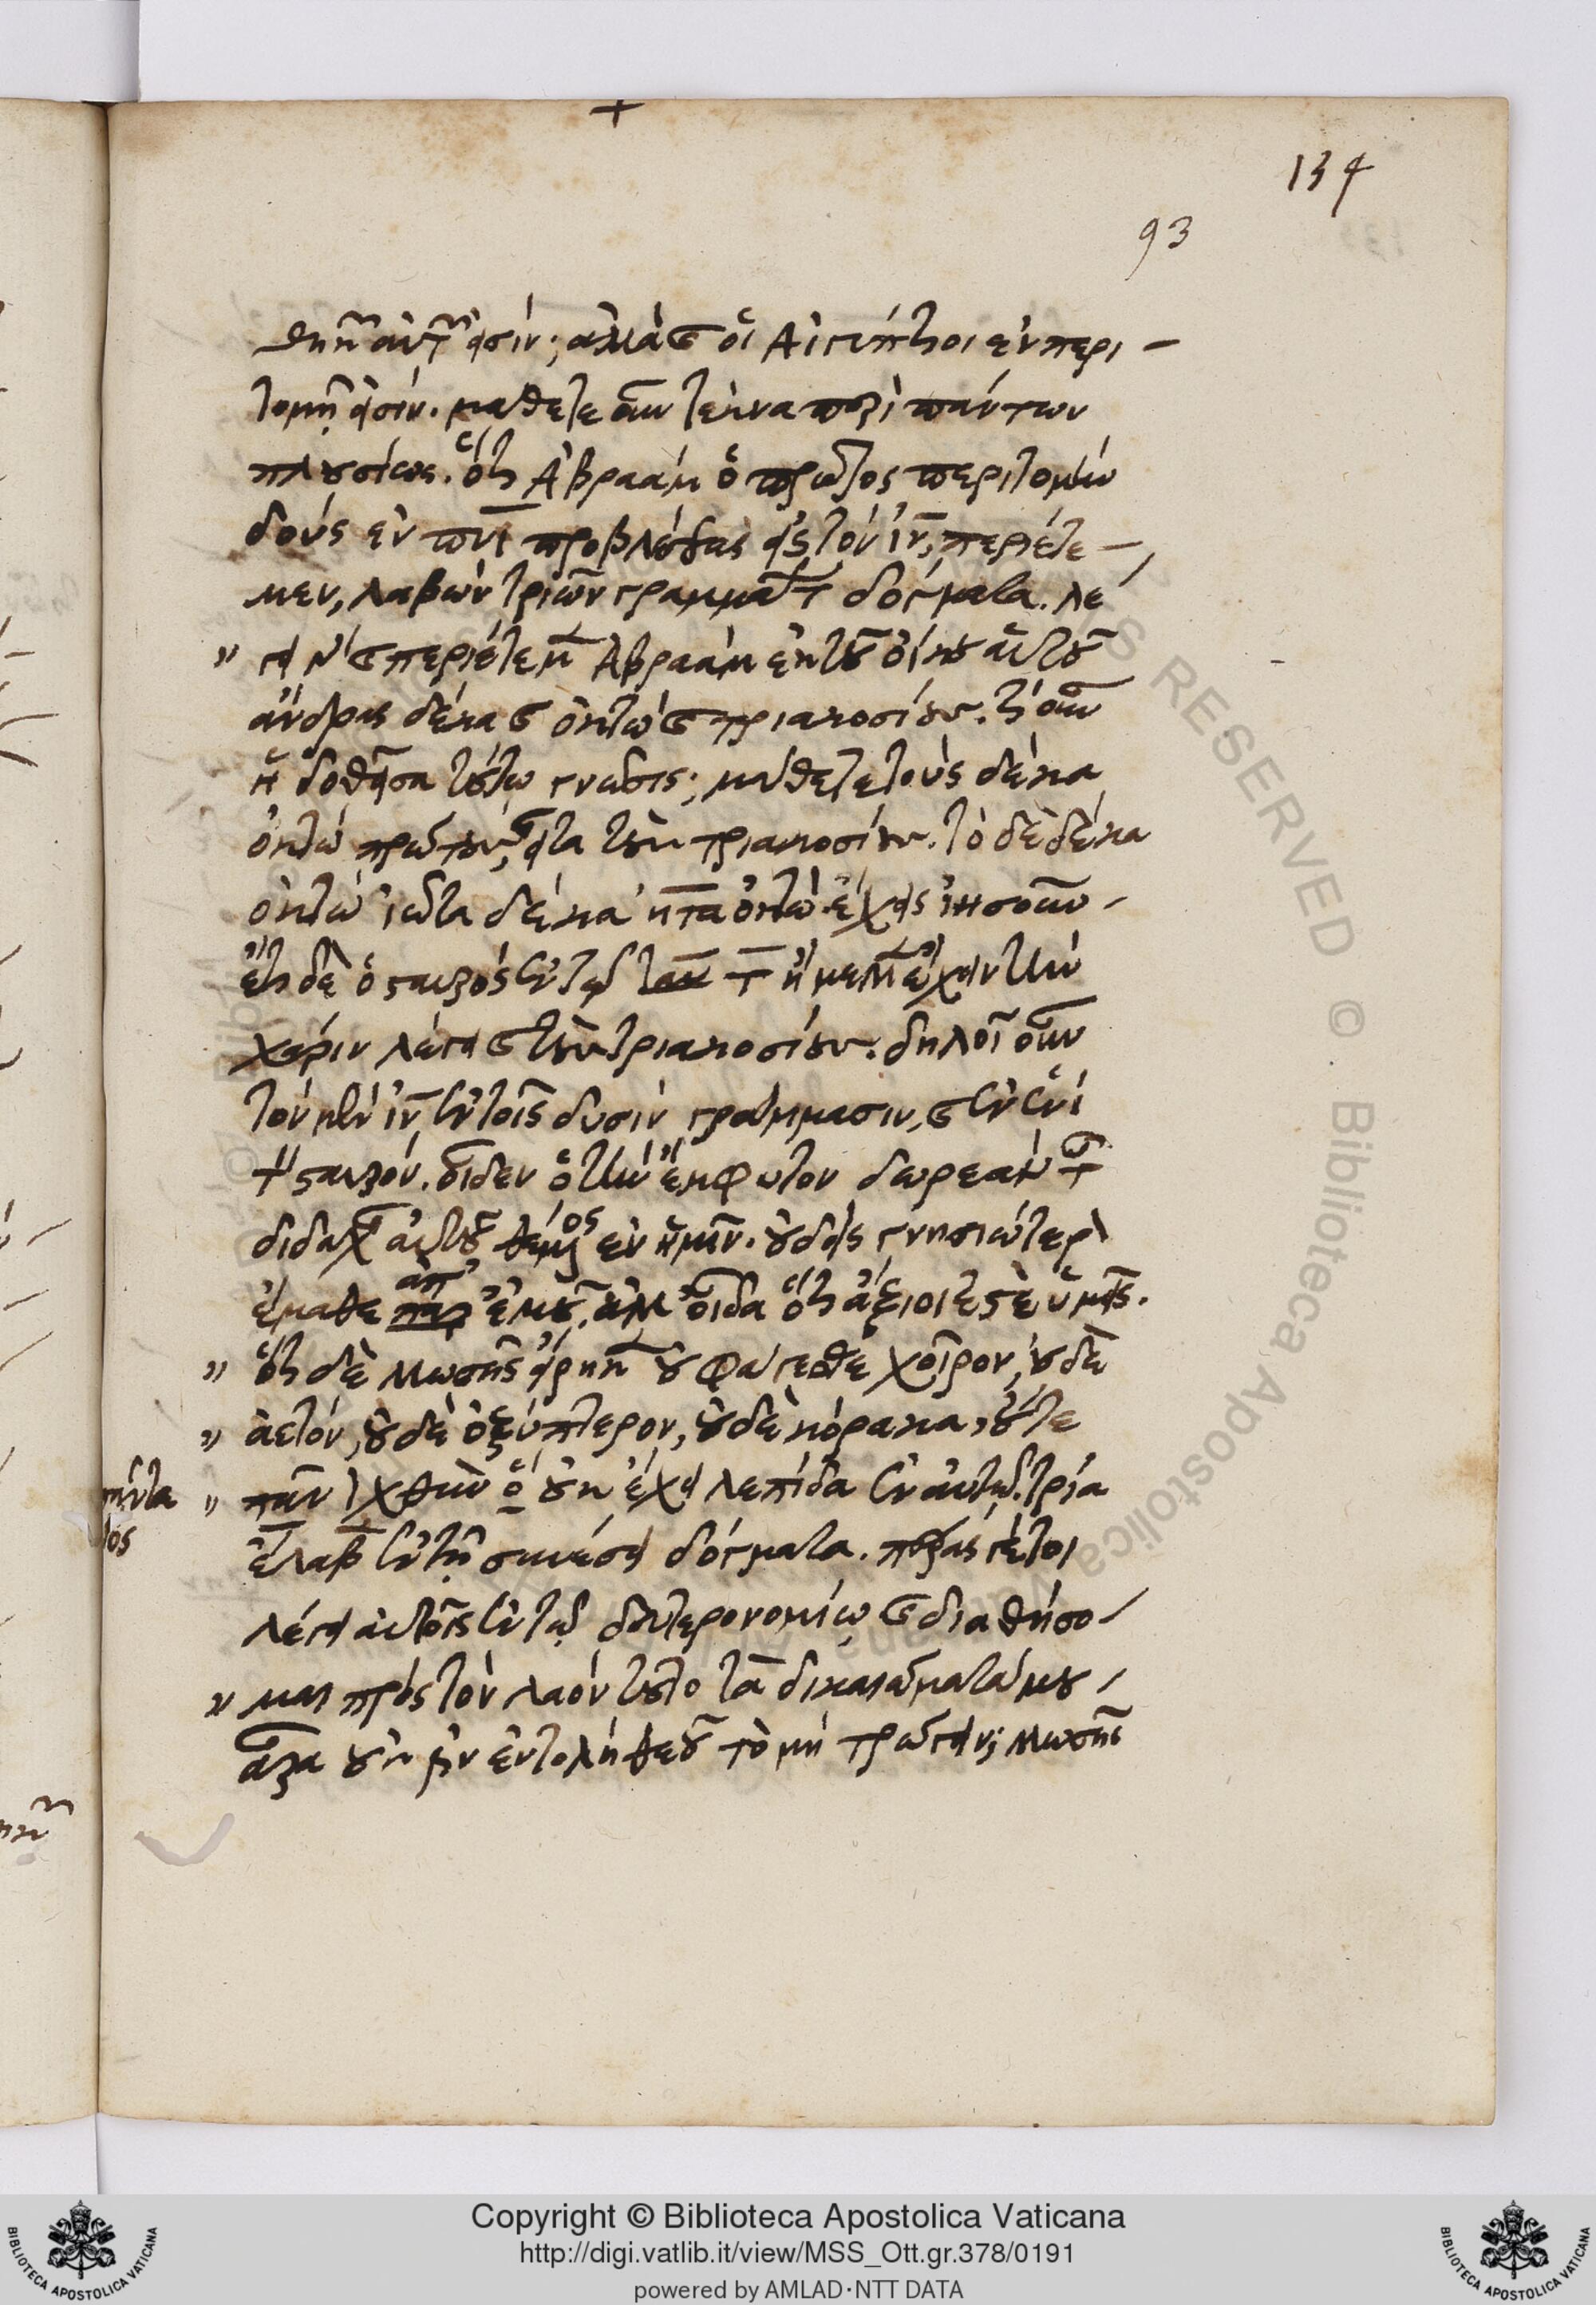 134
93
θήκης αὐτῶν εἰσίν; ἀλλὰ καὶ οἱ Αἰγύπτιοι ἐν περι-
τομῇ εἰσίν. μάθετε οὖν τέκνα περὶ πάντων
πλουσίως. ὅτι Ἀβραὰμ ὁ πρῶτος περιτομὴν
δοὺς ἐν πνι προβλέψας εἰς τὸν ἰν, περιέτε-
μεν, λαβὼν τριῶν γραμμάτων δόγματα. λέ
γει καὶ περιέτεμεν Ἀβραὰμ ἐκ τοῦ οἴκου αὐτοῦ
ἄνδρας δέκα καὶ ὀκτὼ καὶ τριακοσίους. τίς οὖν
ἡ δοθεῖσα τούτῳ γνῶσις; μάθετε τοὺς δέκα
ὀκτὼ πρώτους, εἶτα τοὺς τριακοσίους. τὸ δὲ δέκα
ὀκτὼ ἰῶτα δέκα ἦτα ὀκτὼ ἔχεις ἰησοῦν
ὅτι δὲ ὁ σταυρὸς ἐν τῷ ταῦ ἤμελλεν ἔχειν τὴν
χάριν λέγει καὶ τοὺς τριακοσίους. δηλοῖ οὖν
τὸν μὲν ἰν ἐν τοῖς δυσὶν γράμμασιν, καὶ ἐν ἑνὶ
τὸν σταυρόν. οἶδεν ὁ τὴν ἔμφυτον δωρεὰν τῆς
διδαχῆς αὐτοῦ θέμενος ἐν ἡμῖν. οὐδεὶς γνησιώτερον
ἔμαθε ἀπ' ἐμοῦ. ἀλλ' οἶδα ὅτι ἄξιοί ἐστε ὑμεῖς.
ὅτι δὲ Μωσῆς εἴρηκεν οὐ φάγεσθε χοῖρον, οὐδὲ
ἀετόν, οὐδὲ ὀξύπτερον, οὐδὲ κόρακα, οὔτε
πᾶν ἰχθὺν ὃ οὐκ ἔχει λεπίδα ἐν αὐτῷ. τρία
ἔλαβεν ἐν τῇ συνέσει δόγματα. πέρας γέ τοι
λέγει αὐτοῖς ἐν τῷ δευτερονομίῳ καὶ διαθήσο-
μαι πρὸς τὸν λαὸν τοῦτο τὰ δικαιώματά μου
ἄρα οὐκ ἔστιν ἐντολὴ θεοῦ τὸ μὴ τρώγειν; Μωσῆς
Copyright © Biblioteca Apostolica Vaticana
http://digi.vatlib.it/view/MSS_Ott.gr.378/0191
powered by AMLAD·NTT DATA